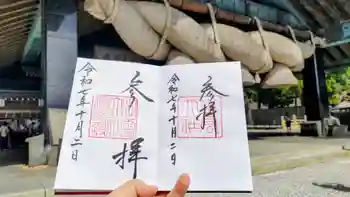 参拝
令和七年十月二日
参拝
令和七年十月二日